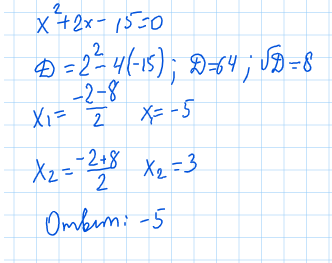 x²+2x-15=0
D=2²-4(-15); D=64; √D=8
x₁=(-2-8)/2 x₁=-5
x₂=(-2+8)/2 x₂=3
Ответ: -5